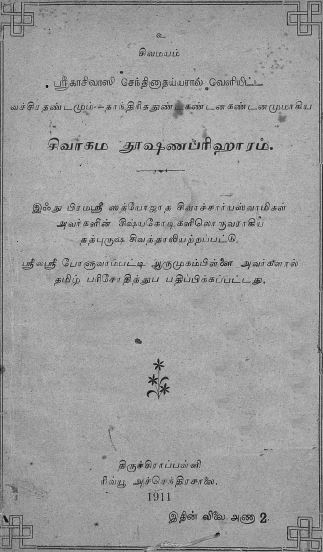 உ
சிவமயம்
ஸ்ரீகாசிவாஸி செந்திநாதய்யரால் வெளியிட்ட
வச்சிரதண்டமும்-தாந்திரிகதுண்டகண்டனகண்டனமுமாகிய
சிவாகம தூஷணப்ரிஹாரம்.
இஃது பிரமஸ்ரீ ஸத்யோஜாத சிவாச்சார்யஸ்வாமிகள்
அவர்களின் சிஷ்யகோடிகளிலொருவராகிய
தத்புருஷ சிவத்தாலியற்றப்பட்டு,
ஸ்ரீலஸ்ரீ போளுவாம்பட்டி ஆறுமுகம்பிள்ளை அவர்களால்
தமிழ் பரிசோதித்துப் பதிப்பிக்கப்பட்டது.
திருச்சிராப்பள்ளி
ரிவ்யூ அச்சேந்திரசாலை.
1911
இதின் விலை அணா 2.